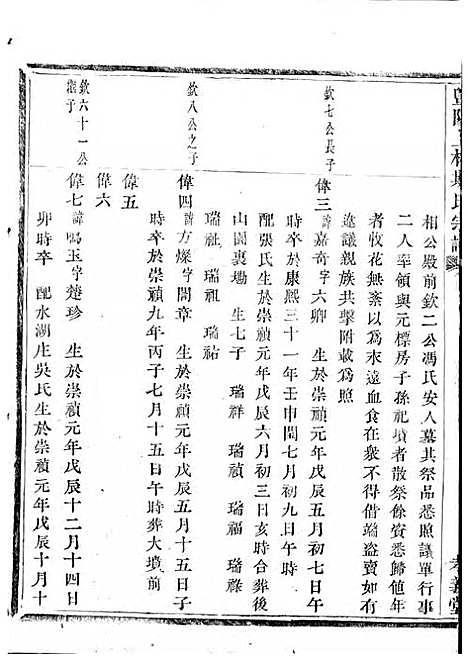 宗譜
相公殿前欽二公馮氏安人墓其祭品悉照議單行事
二人率領與元標房子孫祀墳者散祭餘資悉歸他年
者收花無紊以為永遠血食在眾不得借端盜賣如有
違議親族共擊附載為照
欽七公長子
偉三 諱嘉奇字六卿 生於崇禎元年戊辰五月初七日午
時卒於康熙三十一年壬申閏七月初九日午時
配張氏生於崇禎元年戊辰六月初三日亥時合葬後
山園裏塢 生七子 瑞祥 瑞禎 瑞福 瑞祿
瑞祉 瑞祖 瑞祐
欽八公之子
偉四 諱方燦字闇章 生於崇禎元年戊辰五月十五日子
時卒於崇禎九年丙子七月十五日午時葬大墳前
偉五
偉六
欽六十一公
繼子
偉七 諱鳴玉字楚珍 生於崇禎元年戊辰十二月十四日
卯時卒 配水湖庄吳氏生於崇禎元年戊辰十月十
孝義堂